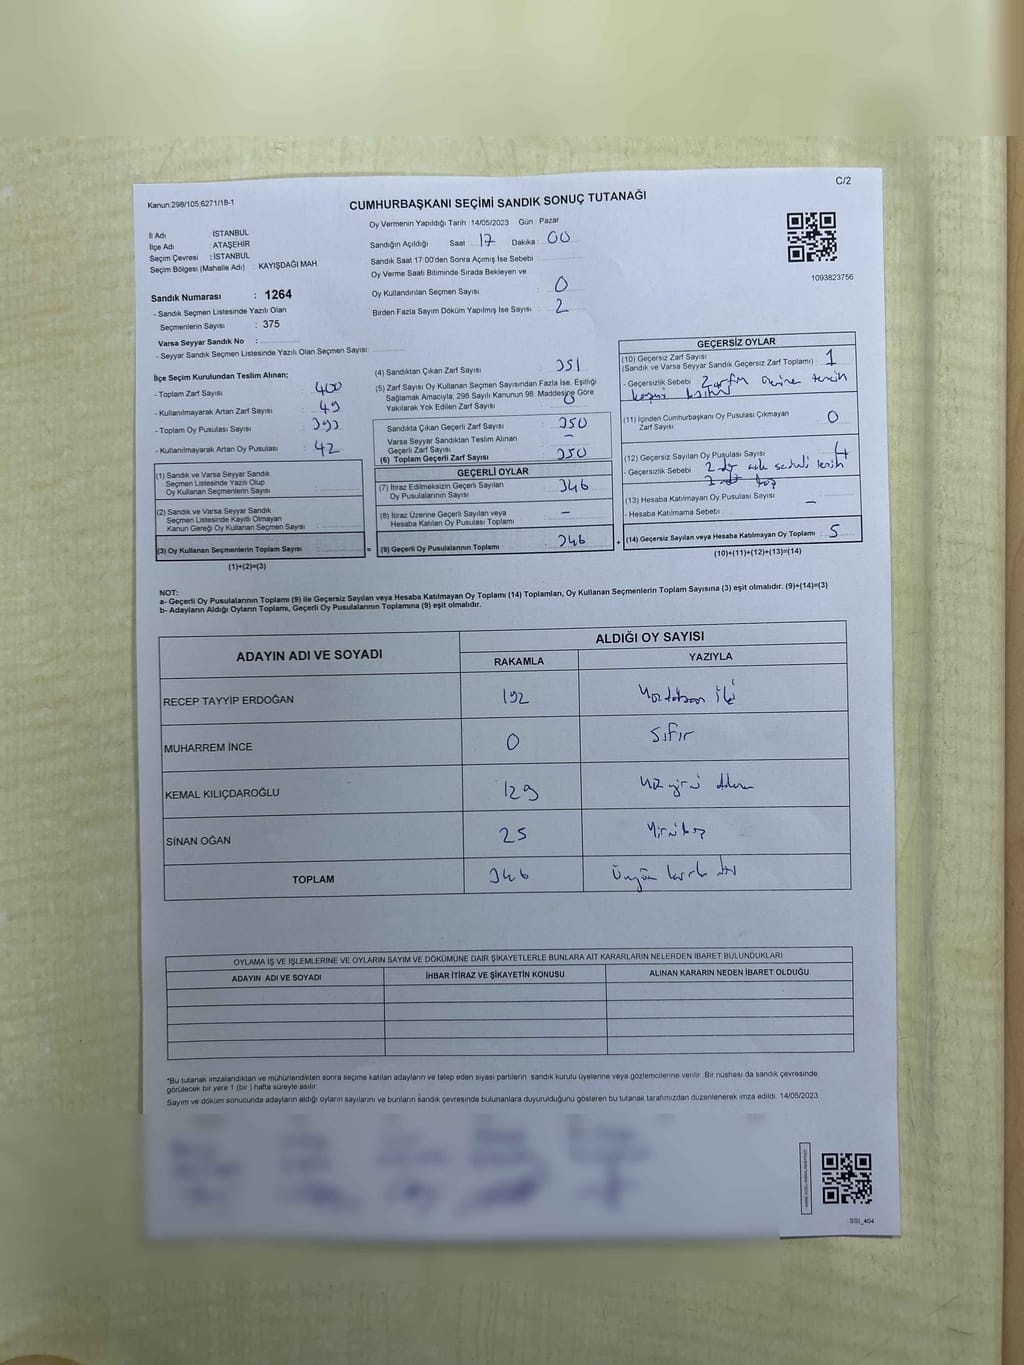 C/2
Kanun:298/105;6271/18-1
CUMHURBAŞKANI SEÇİMİ SANDIK SONUÇ TUTANAĞI
İl Adı : İSTANBUL
İlçe Adı : ATAŞEHİR
Seçim Çevresi : İSTANBUL
Seçim Bölgesi (Mahalle Adı) : KAYIŞDAĞI MAH.
Sandık Numarası : 1264
- Sandık Seçmen Listesinde Yazılı Olan
Seçmenlerin Sayısı : 375
Varsa Seyyar Sandık No :
- Seyyar Sandık Seçmen Listesinde Yazılı Olan Seçmen Sayısı:
Oy Vermenin Yapıldığı Tarih : 14/05/2023 Gün : Pazar
Sandığın Açıldığı Saat 17 Dakika 00
Sandık Saat 17:00'den Sonra Açımış İse Sebebi
Oy Verme Saati Bitiminde Sırada Bekleyen ve
Oy Kullandırılan Seçmen Sayısı : 0
Birden Fazla Sayım Döküm Yapılmış İse Sayısı : 2
1093823756
İlçe Seçim Kurulundan Teslim Alınan;
- Toplam Zarf Sayısı : 400
- Kullanılmayarak Artan Zarf Sayısı : 49
- Toplam Oy Pusulası Sayısı : 393
- Kullanılmayarak Artan Oy Pusulası : 42
(1) Sandık ve Varsa Seyyar Sandık
Seçmen Listesinde Yazılı Olup
Oy Kullanan Seçmenlerin Sayısı
(2) Sandık ve Varsa Seyyar Sandık
Seçmen Listesinde Kayıtlı Olmayan
Kanun Gereği Oy Kullanan Seçmen Sayısı
(3) Oy Kullanan Seçmenlerin Toplam Sayısı
(1)+(2)=(3)
=
(4) Sandıktan Çıkan Zarf Sayısı : 351
(5) Zarf Sayısı Oy Kullanan Seçmen Sayısından Fazla İse, Eşitliği
Sağlamak Amacıyla; 298 Sayılı Kanunun 98. Maddesine Göre
Yakılarak Yok Edilen Zarf Sayısı : 0
Sandıkta Çıkan Geçerli Zarf Sayısı : 350
Varsa Seyyar Sandıktan Teslim Alınan
Geçerli Zarf Sayısı : –
(6) Toplam Geçerli Zarf Sayısı : 350
GEÇERLİ OYLAR
(7) İtiraz Edilmeksizin Geçerli Sayılan
Oy Pusulalarının Sayısı : 346
(8) İtiraz Üzerine Geçerli Sayılan veya
Hesaba Katılan Oy Pusulası Toplamı : –
(9) Geçerli Oy Pusulalarının Toplamı : 346
+
GEÇERSİZ OYLAR
(10) Geçersiz Zarf Sayısı
(Sandık ve Varsa Seyyar Sandık Geçersiz Zarf Toplamı) : 1
- Geçersizlik Sebebi : Zarfın üzerine tercih
(11) İçinden Cumhurbaşkanı Oy Pusulası Çıkmayan
Zarf Sayısı : 0
(12) Geçersiz Sayılan Oy Pusulası Sayısı : 4
- Geçersizlik Sebebi
(13) Hesaba Katılmayan Oy Pusulası Sayısı : –
- Hesaba Katılmama Sebebi :
(14) Geçersiz Sayılan veya Hesaba Katılmayan Oy Toplamı : 5
(10)+(11)+(12)+(13)=(14)
NOT:
a- Geçerli Oy Pusulalarının Toplamı (9) ile Geçersiz Sayılan veya Hesaba Katılmayan Oy Toplamı (14) Toplamları, Oy Kullanan Seçmenlerin Toplam Sayısına (3) eşit olmalıdır. (9)+(14)=(3)
b- Adayların Aldığı Oyların Toplamı, Geçerli Oy Pusulalarının Toplamına (9) eşit olmalıdır.
ADAYIN ADI VE SOYADI ALDIĞI OY SAYISI
RAKAMLA YAZIYLA
RECEP TAYYİP ERDOĞAN 192 Yüzdoksan iki
MUHARREM İNCE 0 Sıfır
KEMAL KILIÇDAROĞLU 129 Yüz yirmi dokuz
SİNAN OĞAN 25 Yirmibeş
TOPLAM 346 Üçyüz kırk altı
OYLAMA İŞ VE İŞLEMLERİNE VE OYLARIN SAYIM VE DÖKÜMÜNE DAİR ŞİKAYETLERLE BUNLARA AİT KARARLARIN NELERDEN İBARET BULUNDUKLARI
ADAYIN ADI VE SOYADI İHBAR İTİRAZ VE ŞİKAYETİN KONUSU ALINAN KARARIN NEDEN İBARET OLDUĞU
*Bu tutanak imzalandıktan ve mühürlendikten sonra seçime katılan adayların ve talep eden siyasi partilerin sandık kurulu üyelerine veya gözlemcilerine verilir. Bir nüshası da sandık çevresinde
görülecek bir yere 1 (bir ) hafta süreyle asılır.
Sayım ve döküm sonucunda adayların aldığı oyların sayılarını ve bunların sandık çevresinde bulunanlara duyurulduğunu gösteren bu tutanak tarafımızdan düzenlenerek imza edildi. 14/05/2023
SSI_404